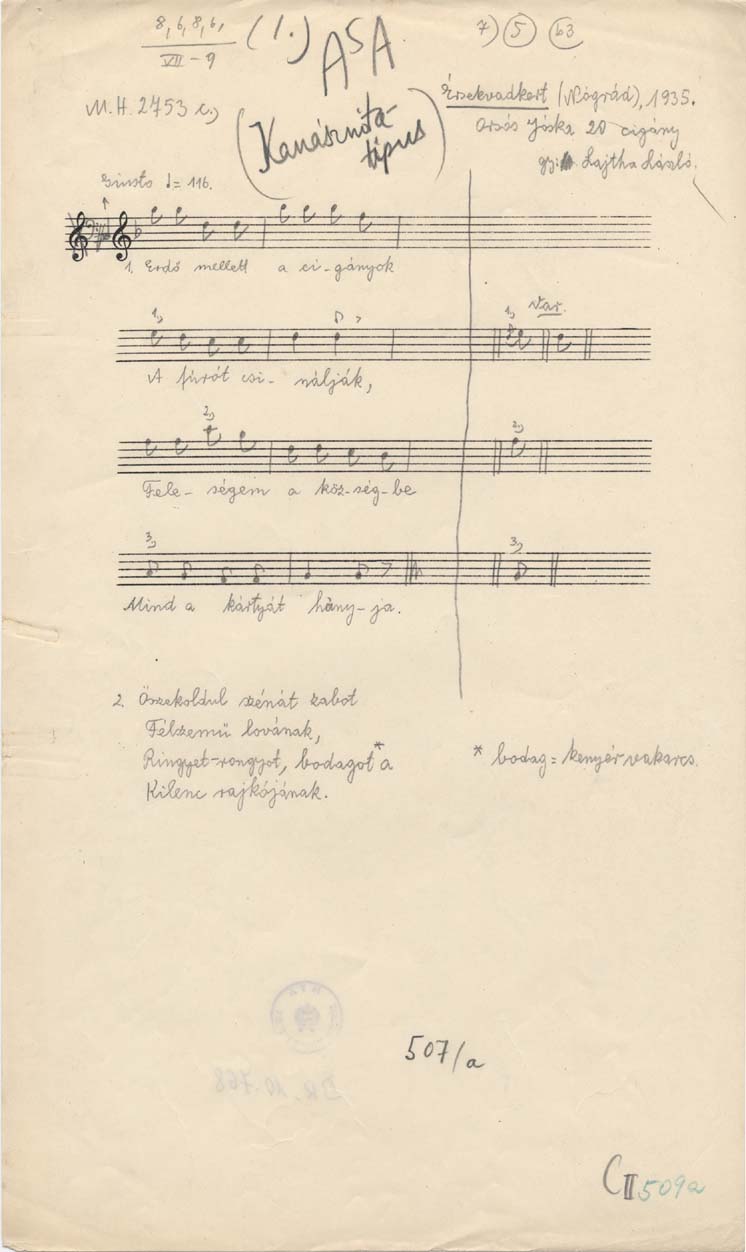 8, 6, 8, 6,
VII - 9
(1.)
A5A
7) 5 b3
M.H. 2753 c,)
(Kanásznóta-
típus)
Érsekvadkert (Nógrád), 1935.
Orsós Jóska 20 cigány
gy: Lajtha László.
Giusto ♩= 116.
1. Erdő mellett a ci-gányok
1,
Var.
1,
A fúrót csi-nálják,
2,
2,
Fele-ségem a köz-ség-be
3,
3,
Mind a kártyát hány-ja.
2. Öszekoldul szénát zabot
Félszemű lovának,
Ringyet-rongyot, bodagot* a
Kilenc rajkójának.
* bodag = kenyér vakarcs.
507/a
CII 509a